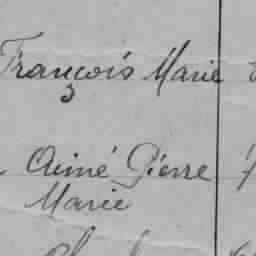 François Marie
Aimé Pierre
Marie